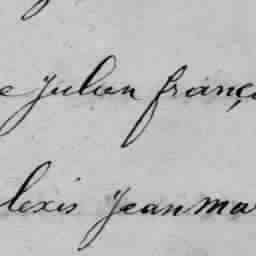 e Julien franç
lexis Jean ma